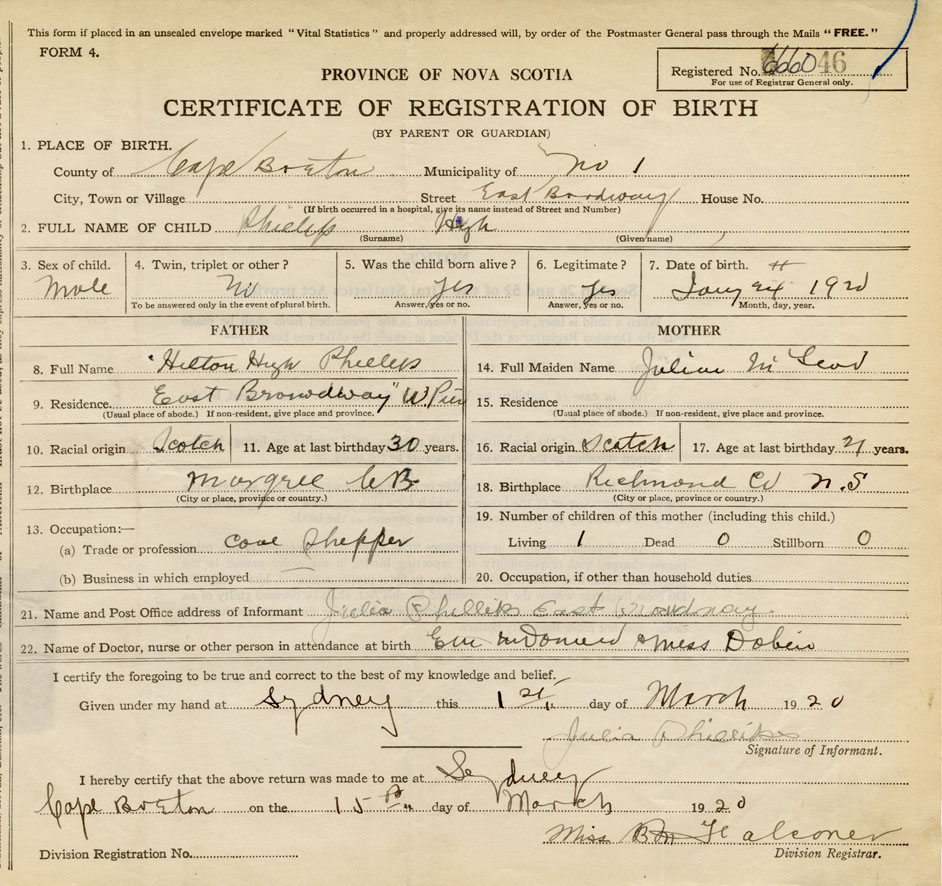 This form if placed in an unsealed envelope marked "Vital Statistics" and properly addressed will, by order of the Postmaster General pass through the Mails "FREE."
FORM 4.
Registered No. 666046
For use of Registrar General only.
PROVINCE OF NOVA SCOTIA
CERTIFICATE OF REGISTRATION OF BIRTH
(BY PARENT OR GUARDIAN)
1. PLACE OF BIRTH.
County of Cape Breton Municipality of No 1
City, Town or Village Street East Bordway House No.
(If birth occurred in a hospital, give its name instead of Street and Number)
2. FULL NAME OF CHILD Phillip Hugh
(Surname) (Given name)
3. Sex of child. 4. Twin, triplet or other? 5. Was the child born alive? 6. Legitimate? 7. Date of birth.
Male No Yes Yes Jany 24 1920
To be answered only in the event of plural birth. Answer, yes or no. Answer, yes or no. Month, day, year.
FATHER MOTHER
8. Full Name Hilton Hugh Phillips 14. Full Maiden Name McLeod
9. Residence East 15. Residence
(Usual place of abode.) If non-resident, give place and province. (Usual place of abode.) If non-resident, give place and province.
10. Racial origin Scotch 11. Age at last birthday 30 years. 16. Racial origin Scotch 17. Age at last birthday 21 years.
12. Birthplace Margree C B 18. Birthplace Richmond Co N.S
(City or place, province or country.) (City or place, province or country.)
13. Occupation:— 19. Number of children of this mother (including this child.)
(a) Trade or profession Living 1 Dead 0 Stillborn 0
(b) Business in which employed 20. Occupation, if other than household duties
21. Name and Post Office address of Informant Julia Phillips East
22. Name of Doctor, nurse or other person in attendance at birth Miss
I certify the foregoing to be true and correct to the best of my knowledge and belief.
Given under my hand at Sydney this 1st day of March 1920
Julia Phillips
Signature of Informant.
I hereby certify that the above return was made to me at Sydney
Cape Breton on the 15th day of March 1920
Miss Falconer
Division Registration No. Division Registrar.